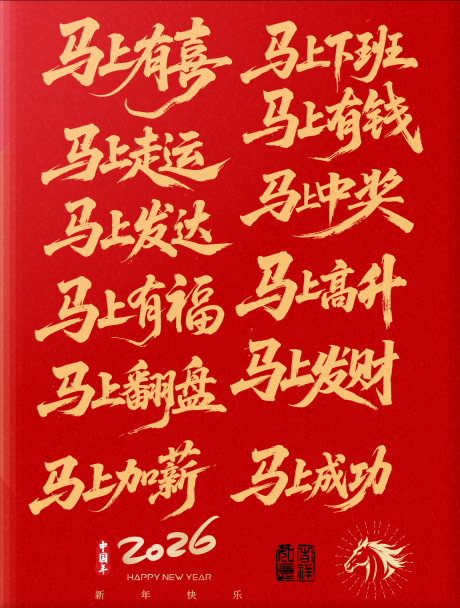 马上有喜
马上下班
马上有钱
马上走运
马上中奖
马上发达
马上高升
马上有福
马上发财
马上翻盘
马上加薪
马上成功
中国年
2026
HAPPY NEW YEAR
新年快乐
吉祥
如意